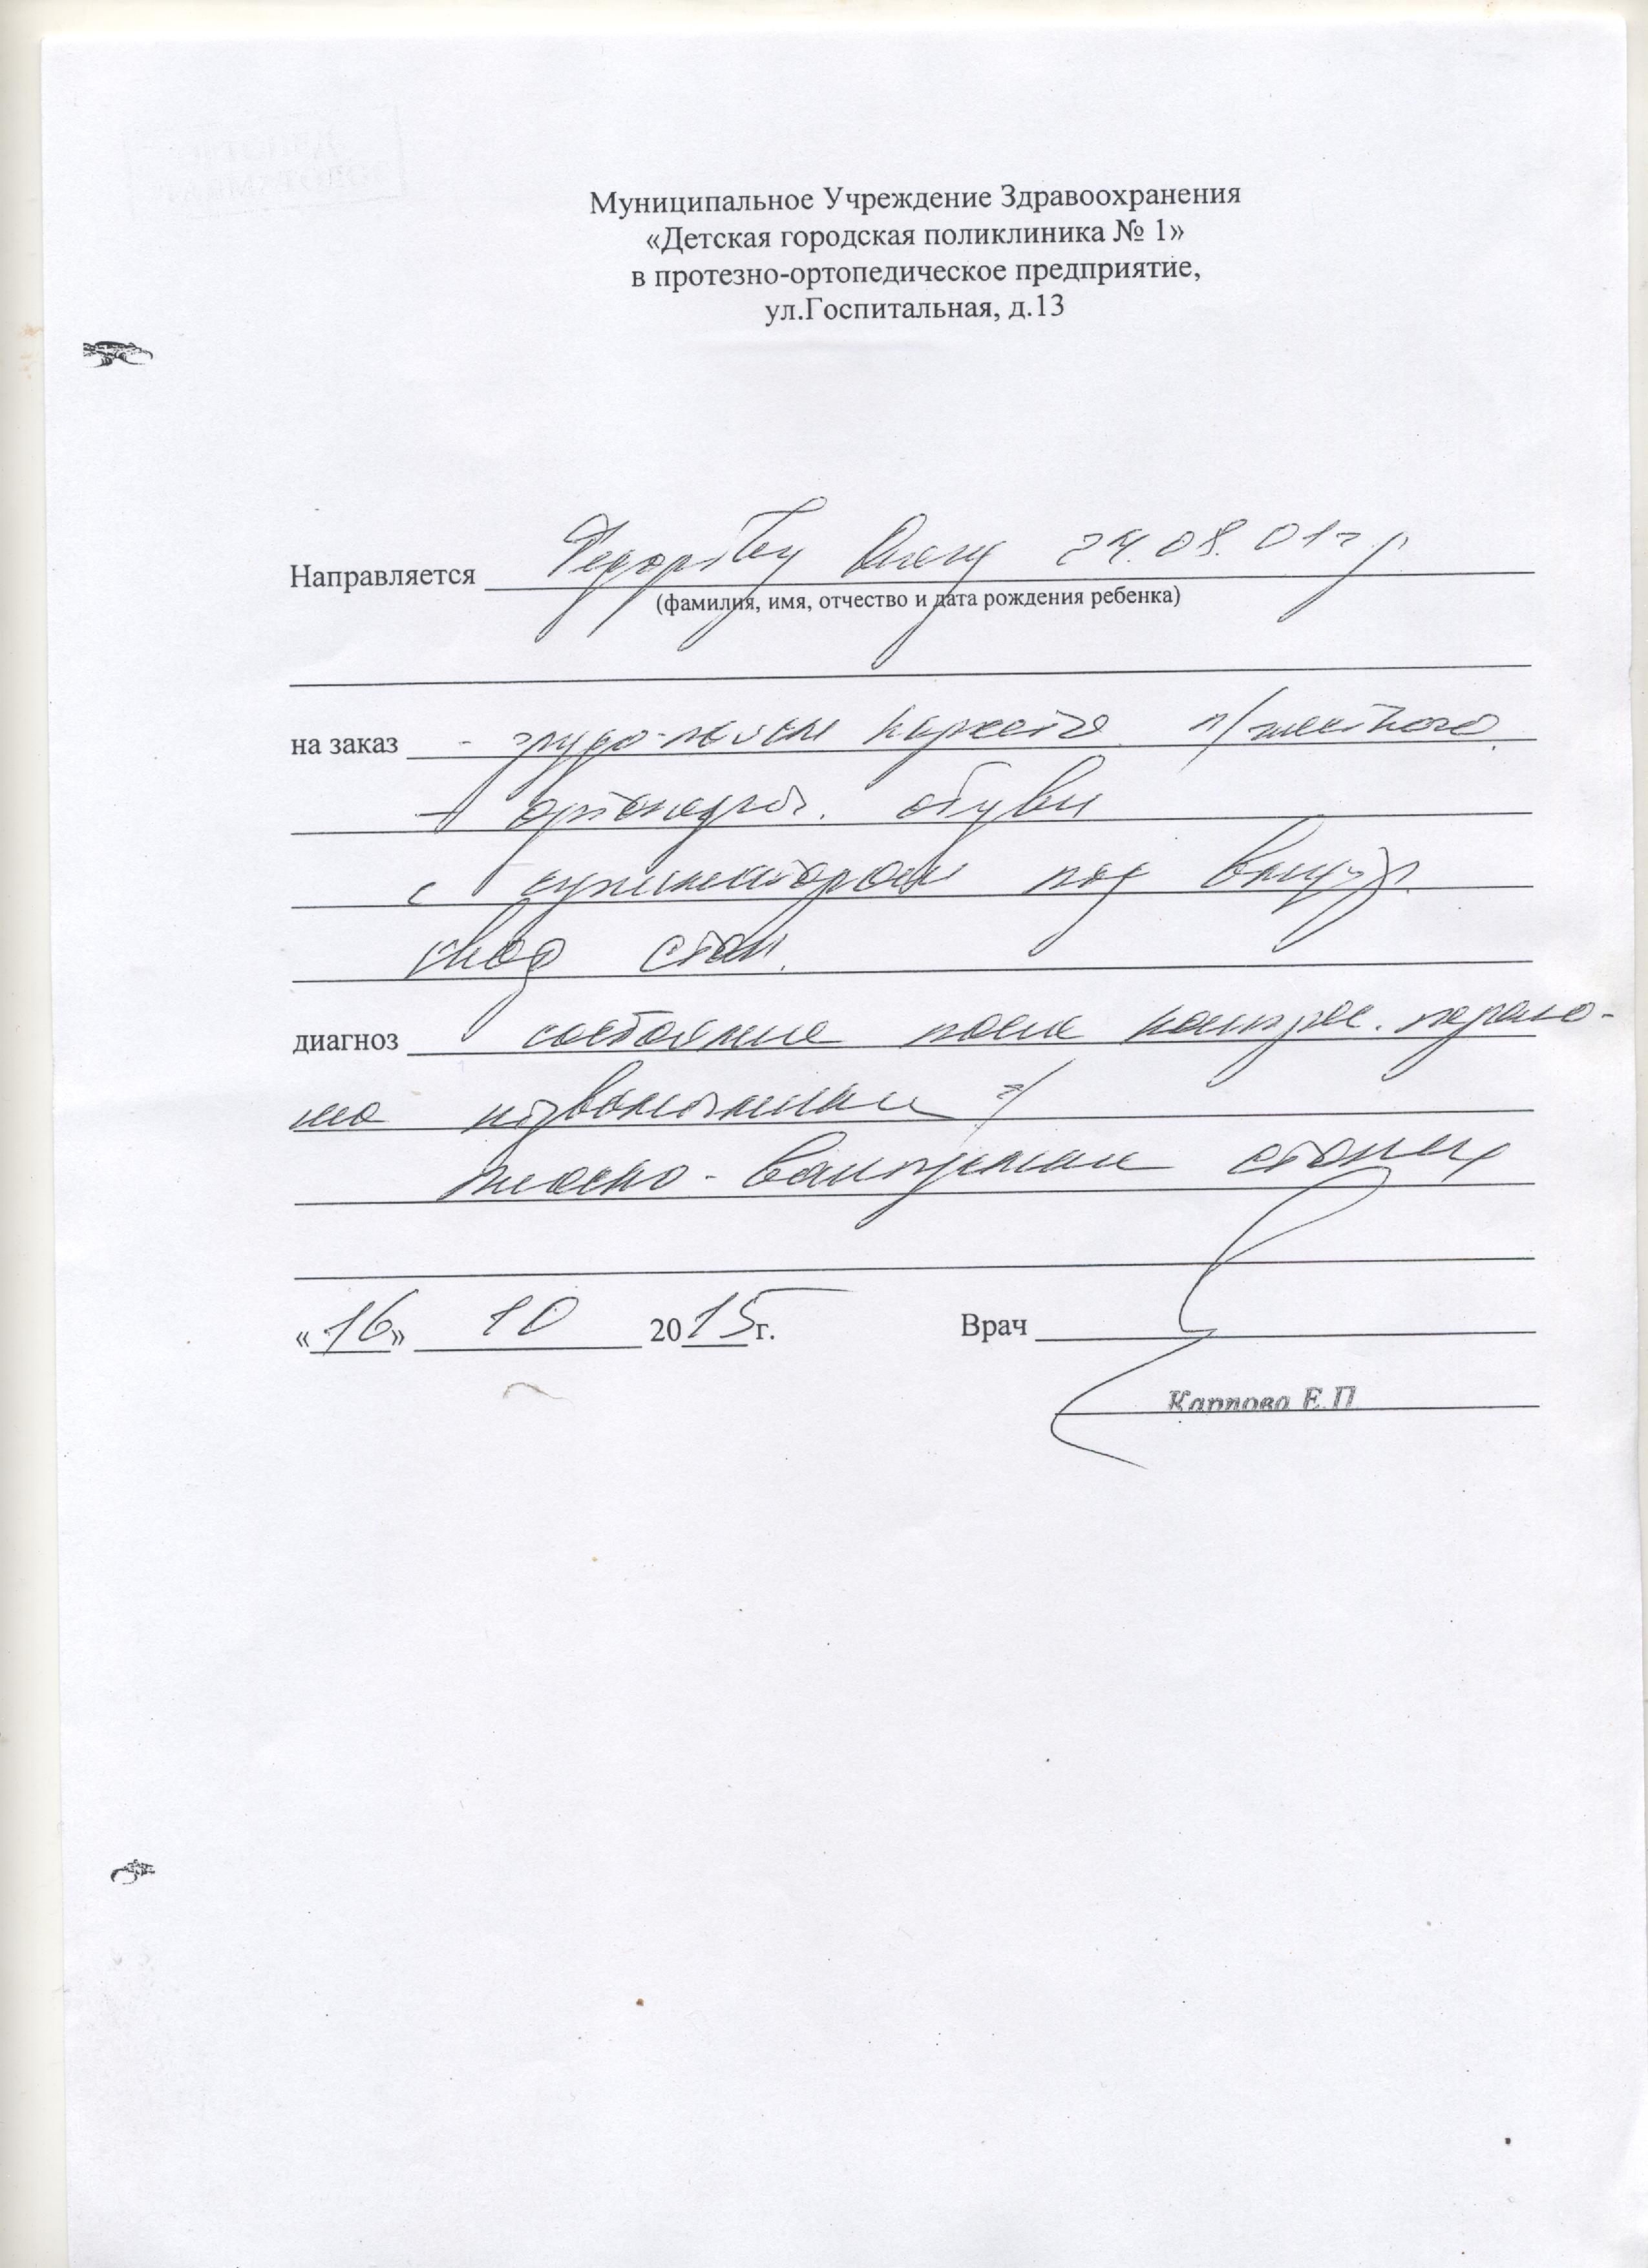 Муниципальное Учреждение Здравоохранения
«Детская городская поликлиника № 1»
в протезно-ортопедическое предприятие,
ул.Госпитальная, д.13
Направляется 24.08.01 г.р.
(фамилия, имя, отчество и дата рождения ребенка)
на заказ - грудо- корсета п/жесткого
- ортопедич. обуви
с супинатором под внутр.
свод стоп.
диагноз состояние после компрес. перело-
ма позвоночника
плоско-вальгусные стопы
«16» 10 2015г. Врач
Карпова Е.П